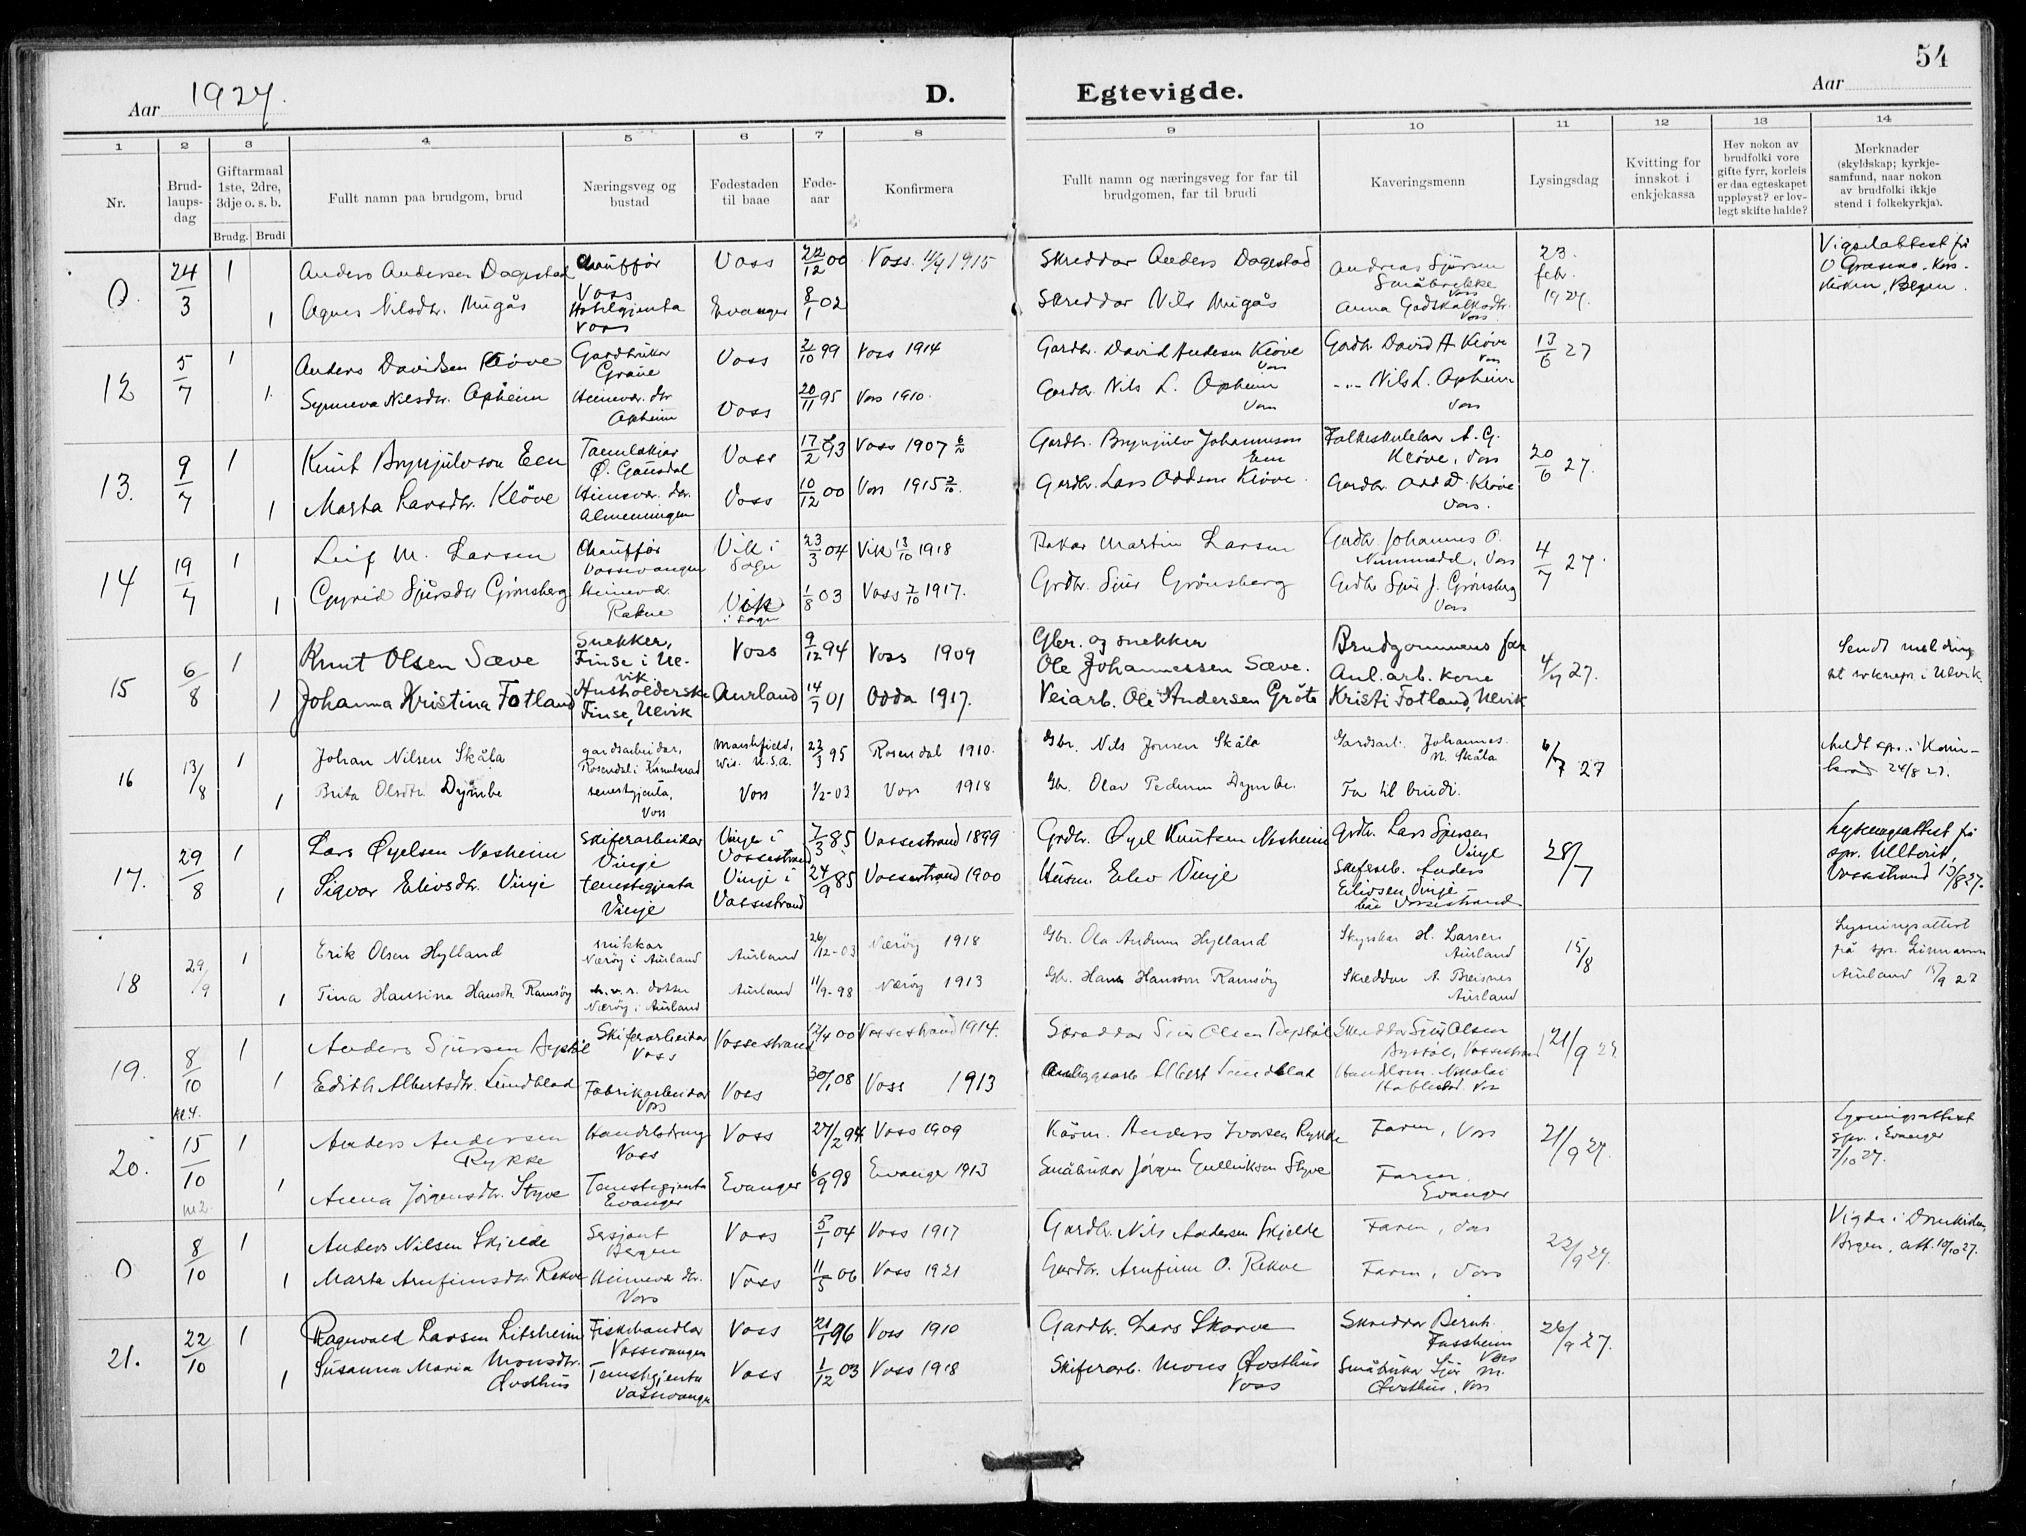 54
Aar 1927.
D. Egtevigde.
Aar
1 2 3 4 5 6 7 8 9 10 11 12 13 14
Nr.
Brud-
laups-
dag
Giftarmaal
1ste, 2dre,
3dje o. s. b.
Brudg. Brudi
Fullt namn paa brudgom, brud
Næringsveg og
bustad
Fødestaden
til baae
Føde-
aar
Konfirmera
Fullt namn og næringsveg for far til
brudgomen, far til brudi
Kaveringsmenn
Lysingsdag
Kvitting for
innskot i
enkjekassa
Hev nokon av
brudfolki vore
gifte fyrr, korleis
er daa egteskapet
uppløyst? er lov-
legt skifte halde?
Merknader
(skyldskap; kyrkje-
samfund, naar nokon
av brudfolki ikkje
stend i folkekyrkja).
0. 24/3 1 Anders Andersen Dagestad Chauffør Voss Voss 22/12 00 Voss 1915 Skreddar Anders Dagestad Andreas Sjursen Småbrekke Voss 23. febr. 1927.
1 Agnes Nilsdtr. Mugås Hotelgjenta Voss Evanger 8/1 02 Skreddar Nils Mugås Anna Godskalksdtr. Voss
Vigselattest frå
12 5/7 1 Anders Davidsen Kløve Gardbrukar Graue Voss 2/10 99 Voss 1914 Gardbr. David Andersen Kløve Voss Gardbr. David A Kløve Voss 13/6 27
1. Synneva Nilsdtr. Opheim Heimev. dtr. Opheim Voss 20/11 95 Voss 1910. Gardbr. Nils L. Opheim Voss -"- Nils L. Opheim Voss
13. 9/7 1 Knut Brynjulvson Een Tannlækjar Ø. Gausdal Voss 17/2 93 Voss 1907 Gardbr. Brynjulv Johannesson Een Folkeskulelær A. G. Kløve, Voss 20/6 27.
1 Marta Larsdtr. Kløve Heimev. dtr. Almenningen Voss 10/12 00 Voss 1915 Gardbr. Lars Oddson Kløve. Gardbr. Odd D. Kløve Voss.
14 19/7 1 Leif M. Larsen Chauffør Vossevangen Vik i Sogn 23/3 04 Vik 13/10 1918 Bakar Martin Larsen Gardbr. Johannes O. Nummedal, Voss 4/7 27.
1 Gyrid Sjursdtr Grønsberg Heimev. Rekve Vik i Sogn 1/8 03 Voss 2/10 1917. Grdbr. Sjur Grønsberg Grdbr Sjur J. Grønsberg Voss
15 6/8 1 Knut Olsen Sæve Snekker, Finse i Ulvik. Voss 9/12 94 Voss 1909 Gbr. og snekker Ole Johannessen Sæve. Brudgommens far 4/7 27.
1 Johanna Kristina Fotland Husholderske Finse, Ulvik Aurland 14/7 01 Odda 1917. Veiarb. Ole Andersen Grøte Anl. arb. kone Kristi Fotland, Ulvik
Sendt melding
til sokneprest i Ulvik.
16 13/8 1 Johan Nilsen Skåla gardsarbeidar, Rosendal i Kvinnherad Marshfield, Wis. U.S.A. 22/3 95 Rosendal 1910. Gbr. Nils Jonsen Skåla Gardsarb. Johannes N. Skåla 6/7 27
1 Brita Olsdtr. Dymbe tenestgjenta, Voss Voss 1/2-03 Voss 1918 Gbr. Olav Pedersen Dymbe. Far til brudi.
Meldt spr. i Kvinn-
herad 24/8 27.
17. 29/8 1 Lars Øyelsen Nesheim Skiferarbeidar Vinje Vinje i Vossestrand 7/3 85 Vossestrand 1899 Grdbr. Øyel Knutsen Nesheim Grdbr. Lars Sjursen Vinje 28/7
1 Sigvor Eilevsdtr. Vinje tenestgjenta Vinje Vinje i Vossestrand 24/9 85 Vossestrand 1900 Husm. Eilev Vinje Skiferarb. Anders Eilivsen Vinje båe Vossestrand
Lysingsattest frå
spr. Ulltveit,
Vossestrand 15/8 27.
18 29/9 1 Erik Olsen Hylland snikkar Nærøy i Aurland Aurland 26/12-03 Nærøy 1918 Gbr. Ola Andersen Hylland Skysskar H. Larsen Aurland 15/8
1 Tina Hansina Hansdtr Ramsøy h.v.s. dotter Nærøy i Aurland Aurland 11/9-98 Nærøy 1913 Gbr. Hans Hansson Ramsøy Skreddar A. Breisnes Aurland
Lysningsattest
frå spr.
Aurland 15/9 27
19. 8/10 kl 4. 1 Anders Sjursen Skiferarbeidar Voss Vossestrand 12/4 00 Vossestrand 1914. Skreddar Sjur Olsen Skreddar Sjur Olsen Vossestrand 21/9 27.
1 Edith Albertsdtr. Lundblad Fabrikarbeidar Voss Voss 30/1 08 Voss 1913 Anleggsarb Albert Lundblad Handelsm. Nikolai Voss
20. 15/10 1 Anders Andersen Rykke Handelsdreng Voss Voss 27/2 94 Voss 1909 Kårm. Anders Ivarsen Rykke Faren, Voss 21/9 27.
1 Anna Jørgensdtr. Styve Tenestegjenta Evanger Evanger 6/9 98 Evanger 1913 Småbrukar Jørgen Gulleiksen Styve Faren Evanger
Lysningsattest
spr. i Evanger
7/10 27.
0 8/10 1 Anders Nilsen Skjelde Sersjant Bergen Voss 5/1 04 Voss 1917 Gardbr. Nils Andersen Skjelde Faren, Voss 22/9 27.
1 Marta Arnfinnsdtr Rekve Heimev. dtr. Voss Voss 11/5 06 Voss 1921 Gardbr. Arnfinn O. Rekve Faren, Voss
Vigde i Domkirken,
Bergen, att. 10/10 27.
21. 22/10 1 Ragnvald Larsen Litsheim Fiskehandlar Vossevangen Voss 21/1 96 Voss 1910 Gardbr. Lars Skorve Skreddar Bernh. Fassheim Voss 26/9 27.
1 Susanna Maria Monsdtr. Øvsthus Tenestgjenta Vossevangen Voss 1/12 03 Voss 1918 Skiferarb. Mons Øvsthus Voss Småbrukar Sjur M. Øvsthus, Voss